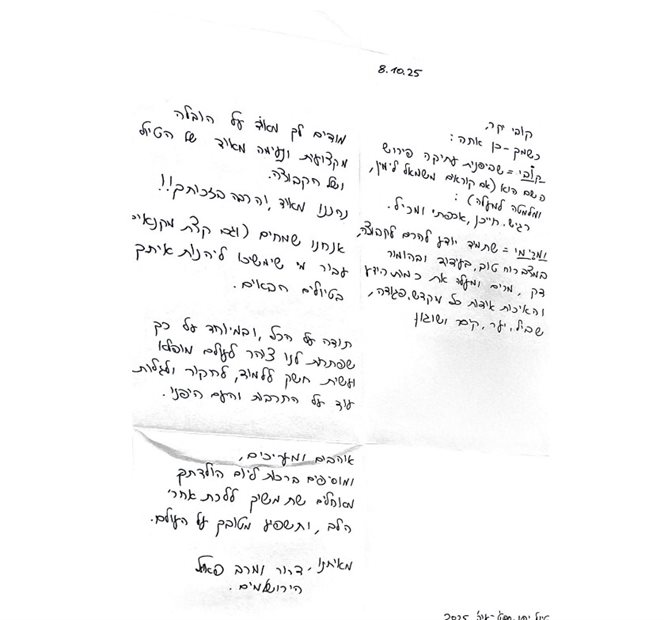 8.10.25
קובי יקר,
כשמך-כן אתה:
קובי = שביפנית עתיקה פירוש
השם הוא (אם קוראים משמאל לימין,
ומלמטה למעלה):
רגיש. חייכן, אכפתי ומכיל.
ומגימי = שתמיד יודע להרים לקבוצה,
במצב רוח טוב, בעידוד ובהומור
דק, מרים ומעלה את כמות הידע
והאיכות אודות כל מקדש, פגודה,
שביל, יער, קיסר ושוגון
מודים לך מאוד על הובלה
מקצועית ונעימה מאוד של הטיול
ושל הקבוצה.
נהננו מאוד, והרבה בזכותך!!
אנחנו שמחים (וגם קצת מקנאים
עבור מי שימשיכו ליהנות איתך
בטיולים הבאים.
תודה על הכל, ובמיוחד על כך
שפתחת לנו צוהר לעולם מופלא
ועשית חשק ללמוד, לחקור ולגלות
עוד על התרבות והעם היפני.
אוהבים ומעריכים,
ומוסיפים ברכות ליום הולדתך
מאחלים שתמשיך ללכת אחרי
הלב, ותשפיע מטובך על העולם.
מאיתנו, דרור ומרב
הירושלמים.
טיול יפן 2025